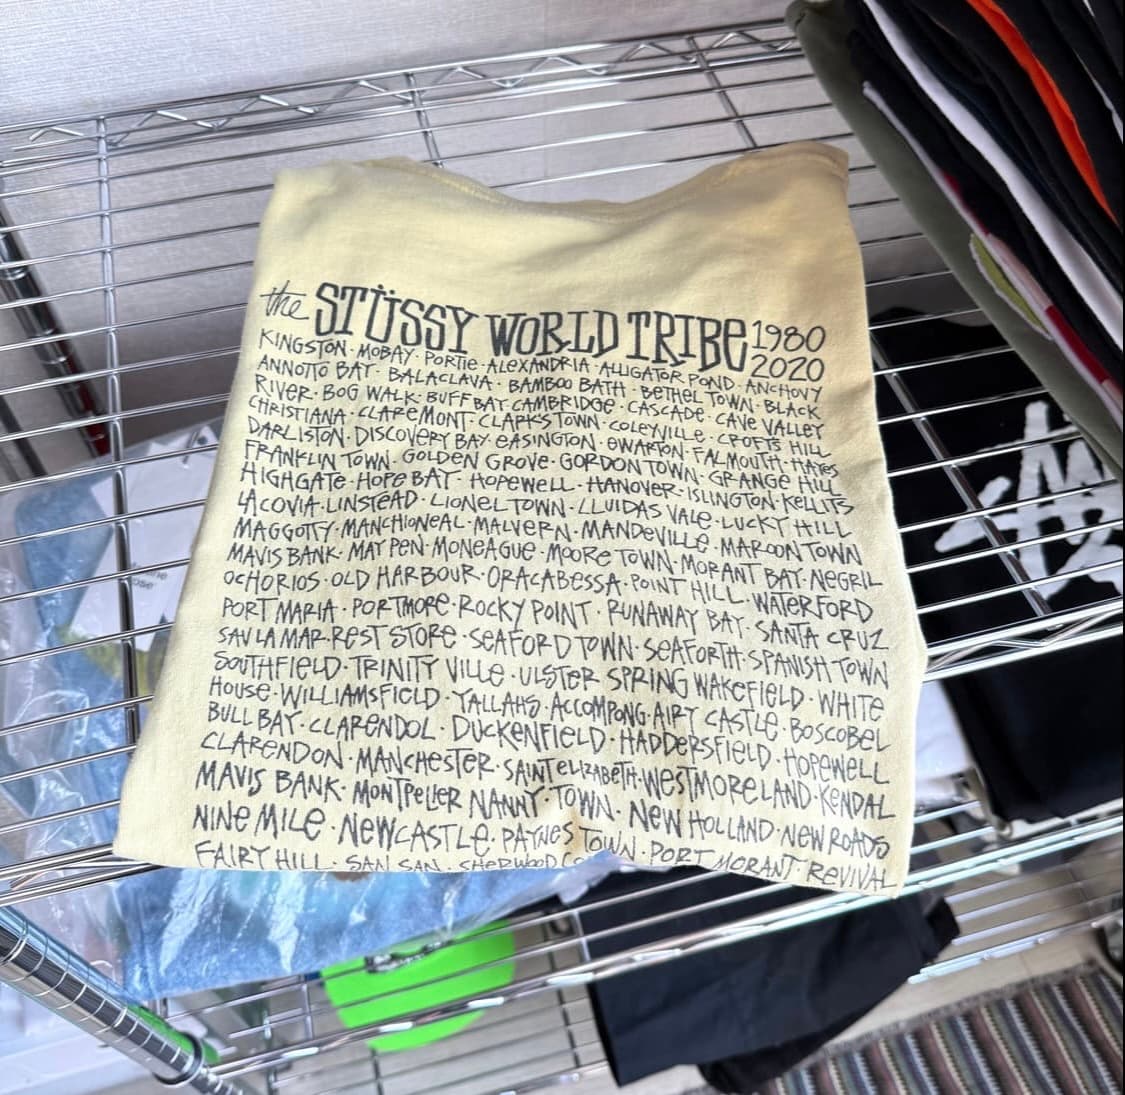 the STÜSSY WORLD TRIBE 1980 2020
KINGSTON · MOBAY · PORTIE · ALEXANDRIA · ALLIGATOR POND · ANCHOVY
ANNOTTO BAY · BALACLAVA · BAMBOO BATH · BETHEL TOWN · BLACK
RIVER · BOG WALK · BUFF BAY · CAMBRIDGE · CASCADE · CAVE VALLEY
CHRISTIANA · CLAREMONT · CLARKSTOWN · COLEYVILLE · CROFTS HILL
DARLISTON · DISCOVERY BAY · EASINGTON · EWARTON · FALMOUTH · HAYES
FRANKLIN TOWN · GOLDEN GROVE · GORDON TOWN · GRANGE HILL
HIGHGATE · HOPE BAY · HOPEWELL · HANOVER · ISLINGTON · KELLITS
LACOVIA · LINSTEAD · LIONEL TOWN · LLUIDAS VALE · LUCKY HILL
MAGGOTTY · MANCHIONEAL · MALVERN · MANDEVILLE · MAROON TOWN
MAVIS BANK · MAY PEN MONEAGUE · MOORE TOWN · MORANT BAY · NEGRIL
OCHORIOS · OLD HARBOUR · ORACABESSA · POINT HILL · WATERFORD
PORT MARIA · PORTMORE · ROCKY POINT · RUNAWAY BAY · SANTA CRUZ
SAV LA MAR · REST STORE · SEAFORD TOWN · SEAFORTH · SPANISH TOWN
SOUTHFIELD · TRINITY VILLE · ULSTER SPRING WAKEFIELD · WHITE
HOUSE · WILLIAMSFIELD · YALLAHS · ACCOMPONG · AIRY CASTLE · BOSCOBEL
BULL BAY · CLARENDOL · DUCKENFIELD · HADDERSFIELD · HOPEWELL
CLARENDON · MANCHESTER · SAINT ELIZABETH · WESTMORELAND · KENDAL
MAVIS BANK · MONTPELIER NANNY TOWN · NEW HOLLAND · NEW ROADS
NINE MILE · NEWCASTLE · PAYNES TOWN · PORT MORANT · REVIVAL
FAIRY HILL · SAN SAN · SHERWOOD